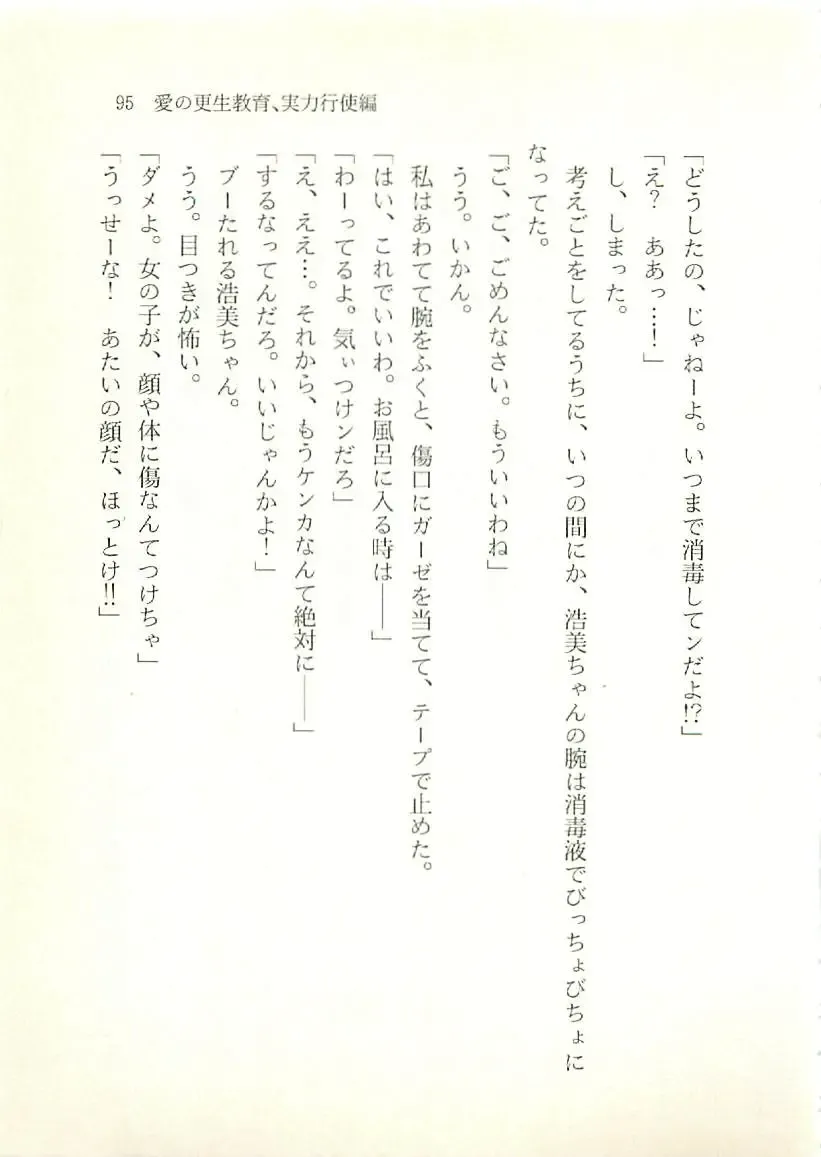 95 愛の更生教育、実力行使編
「どうしたの、じゃねーよ。いつまで消毒してンだよ!?」
「え? ああっ…!」
し、しまった。
考えごとをしてるうちに、いつの間にか、浩美ちゃんの腕は消毒液でびっちょびちょに
なってた。
「ご、ご、ごめんなさい。もういいわね」
うう。いかん。
私はあわてて腕をふくと、傷口にガーゼを当てて、テープで止めた。
「はい、これでいいわ。お風呂に入る時は――」
「わーってるよ。気ぃつけンだろ」
「え、ええ…。それから、もうケンカなんて絶対に――」
「するなってんだろ。いいじゃんかよ!」
ブーたれる浩美ちゃん。
うう。目つきが怖い。
「ダメよ。女の子が、顔や体に傷なんてつけちゃ」
「うっせーな! あたいの顔だ、ほっとけ!!」